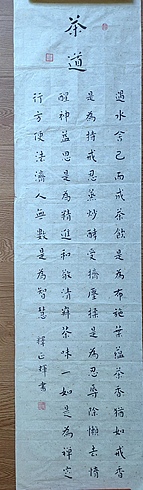 茶道
遇水舍己而成茶飲是為布施葉蘊茶香猶如戒香
是為持戒忍蒸炒酵受擠壓揉是為忍辱除懶去惰
醒神益思是為精進和敬清寂茶味一如是為禪定
行方便法濟人無數是為智慧 釋正輝書